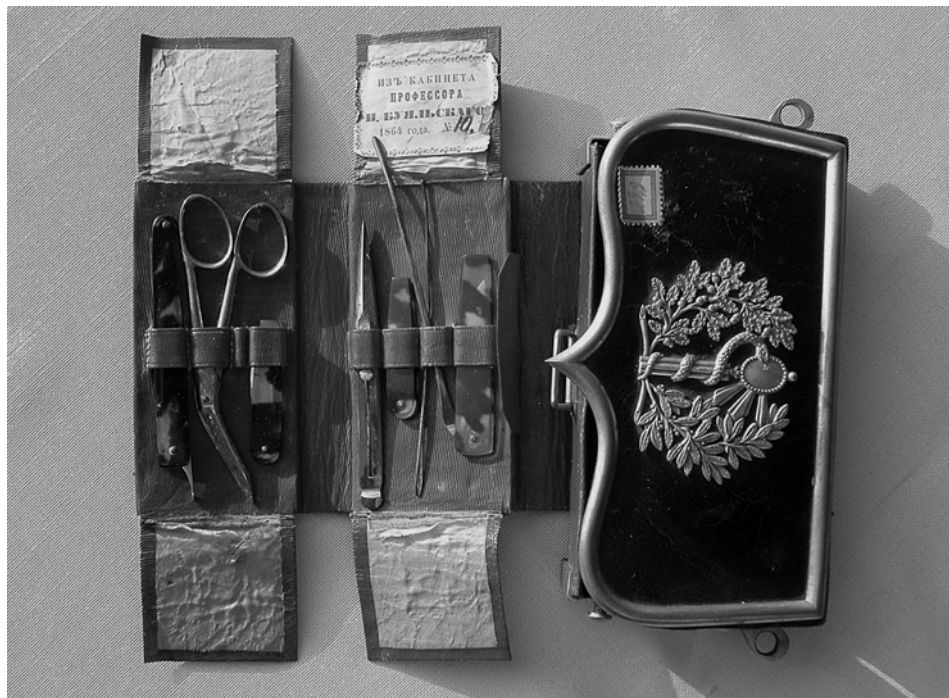 ИЗЪ КАБИНЕТА
ПРОФЕССОРА
И. БУЯЛЬСКАГО
1864 года. № 10.